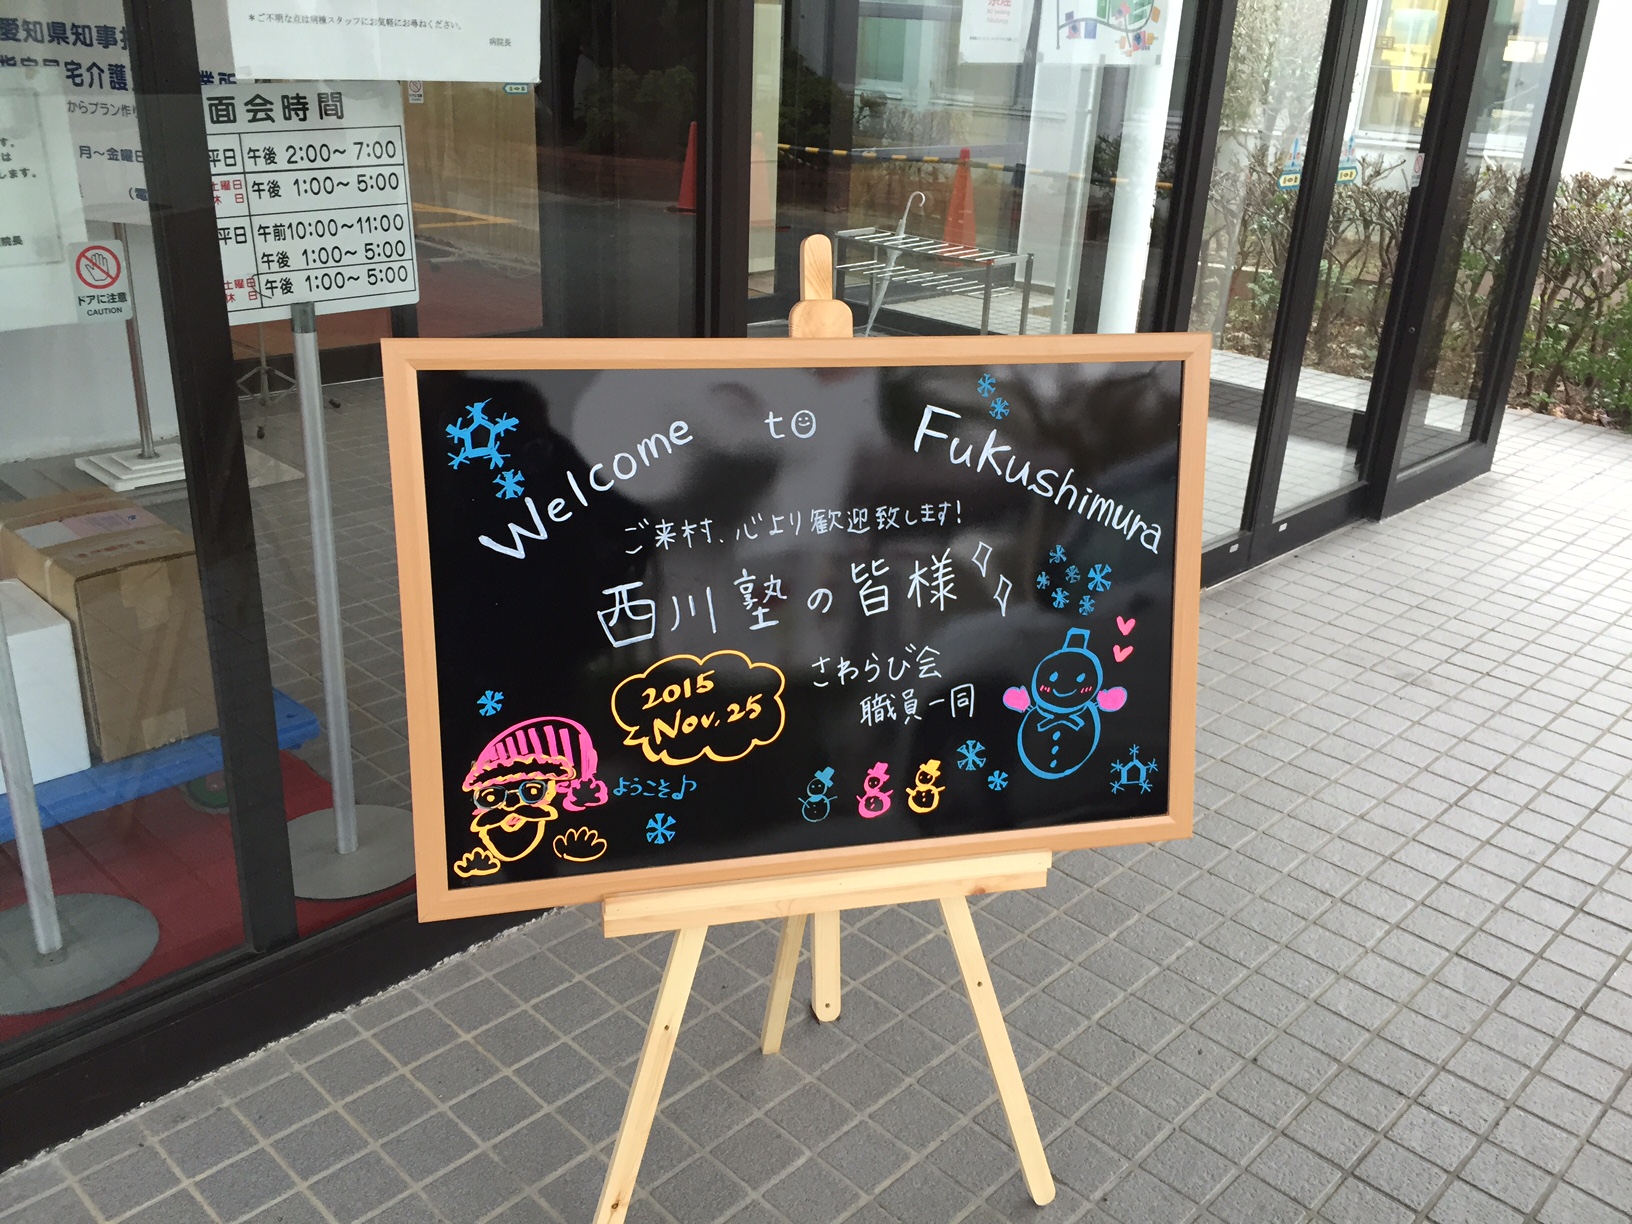 ＊ご不明な点は病棟スタッフにお気軽にお尋ねください。
病院長
愛知県知事
宅介護
からプラン作り
月～金曜日
面会時間
平日 午後 2:00～7:00
土曜日 休日 午後 1:00～5:00
平日 午前10:00～11:00
午後 1:00～5:00
土曜日 休日 午後 1:00～5:00
ドアに注意
CAUTION
Welcome to Fukushimura
ご来村、心より歓迎致します!
西川塾の皆様
さわらび会
職員一同
2015
Nov. 25
ようこそ♪